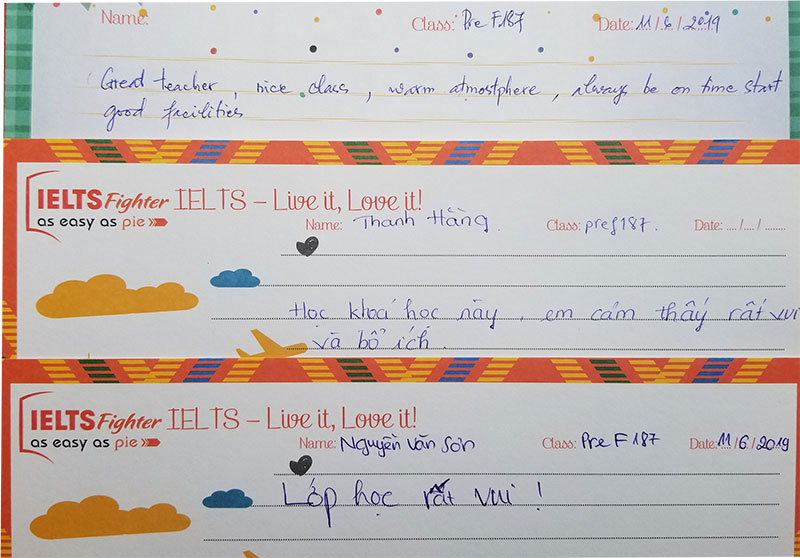 Name: Class: Pre F187 Date: 11/6/2019
Great teacher, nice class, warm atmostphere, always be on time start
good facilities
IELTS Fighter IELTS – Live it, Love it!
as easy as pie
Name: Thanh Hằng Class: pref187. Date: .... /.... / ........
Học khoá học này, em cảm thấy rất vui
và bổ ích.
IELTS Fighter IELTS – Live it, Love it!
as easy as pie
Name: Nguyễn Văn Sơn Class: Pre F 187 Date: 11/6/2019
Lớp học rất vui !